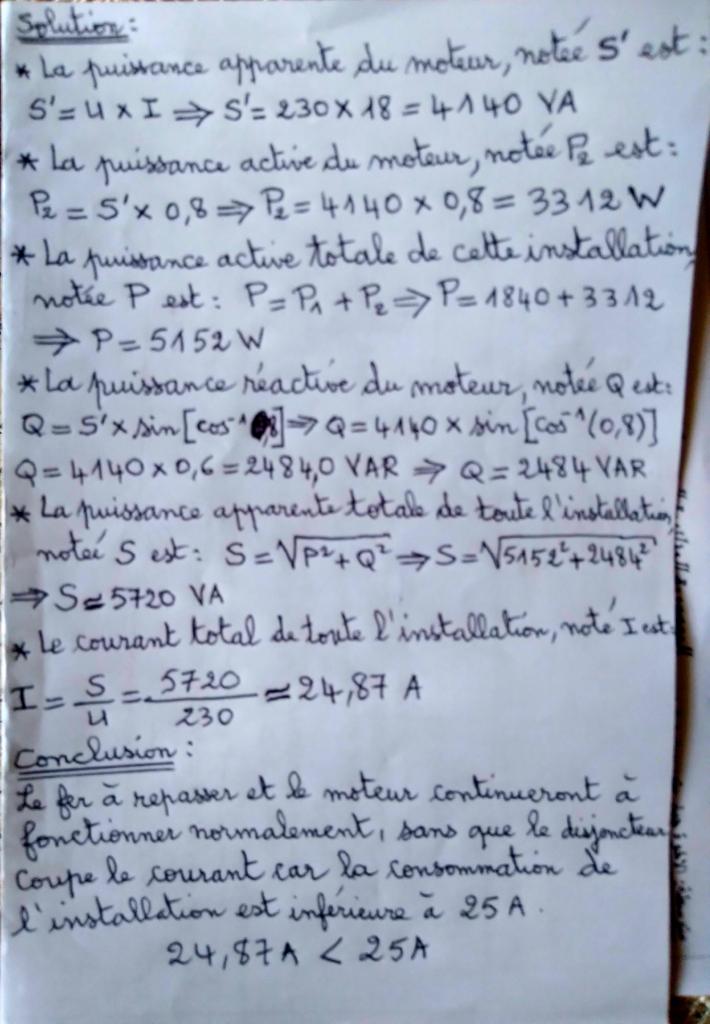 Solution :
* La puissance apparente du moteur, notée S' est :
S' = U x I ⇒ S' = 230 x 18 = 4140 VA
* La puissance active du moteur, notée P₂ est :
P₂ = S' x 0,8 ⇒ P₂ = 4140 x 0,8 = 3312 W
* La puissance active totale de cette installation,
notée P est : P = P₁ + P₂ ⇒ P = 1840 + 3312
⇒ P = 5152 W
* La puissance réactive du moteur, notée Q est :
Q = S' x sin [cos⁻¹ 0,8] ⇒ Q = 4140 x sin [cos⁻¹(0,8)]
Q = 4140 x 0,6 = 2484,0 VAR ⇒ Q = 2484 VAR
* La puissance apparente totale de toute l'installation,
notée S est : S = √P² + Q² ⇒ S = √5152² + 2484²
⇒ S ≃ 5720 VA
* Le courant total de toute l'installation, noté I est :
I = S/U = 5720/230 ≃ 24,87 A
Conclusion :
Le fer à repasser et le moteur continueront à
fonctionner normalement, sans que le disjoncteur
coupe le courant car la consommation de
l'installation est inférieure à 25 A.
24,87 A < 25 A